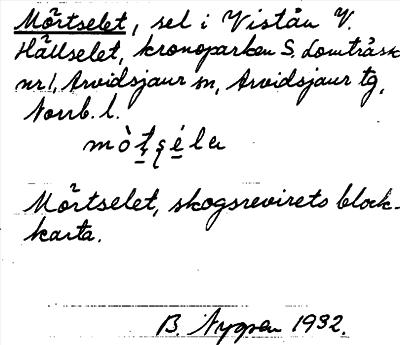 Mörtselet, sel i Vistån V.
Hällselet, kronoparken S. Lomträsk
nr 1, Arvidsjaur sn, Arvidsjaur tg,
Norrb. l.
Mörtselet, skogsrevirets block-
karta.
B. Nygren 1932.